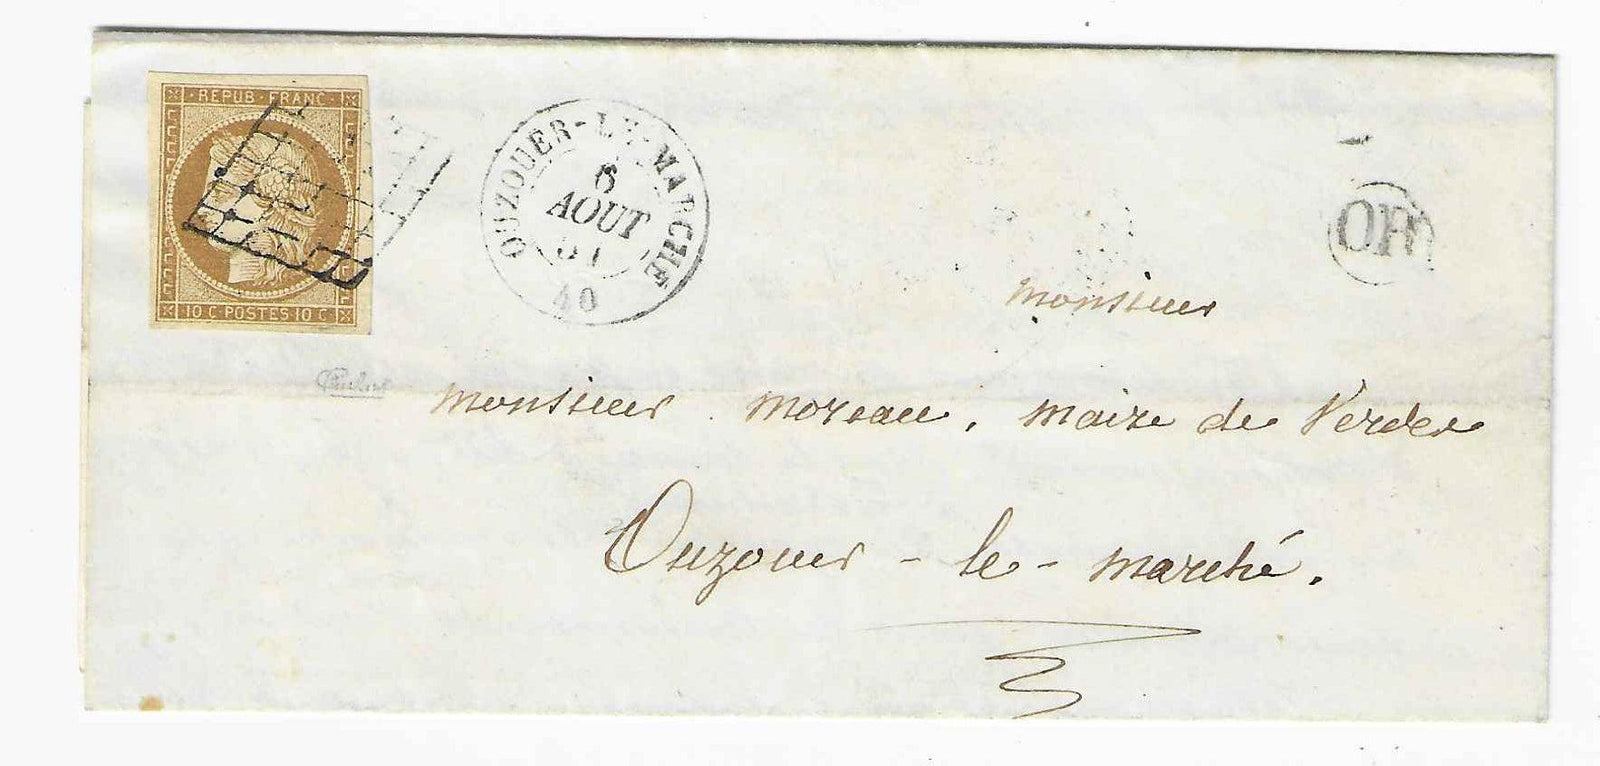 REPUB · FRANC ·
10 C POSTES 10 C
OUZOUER-LE-MARCHE
6
AOUT
51
40
OR
Monsieur
Monsieur Moreau, Maire de Verdes
Ouzouer - le - Marché.